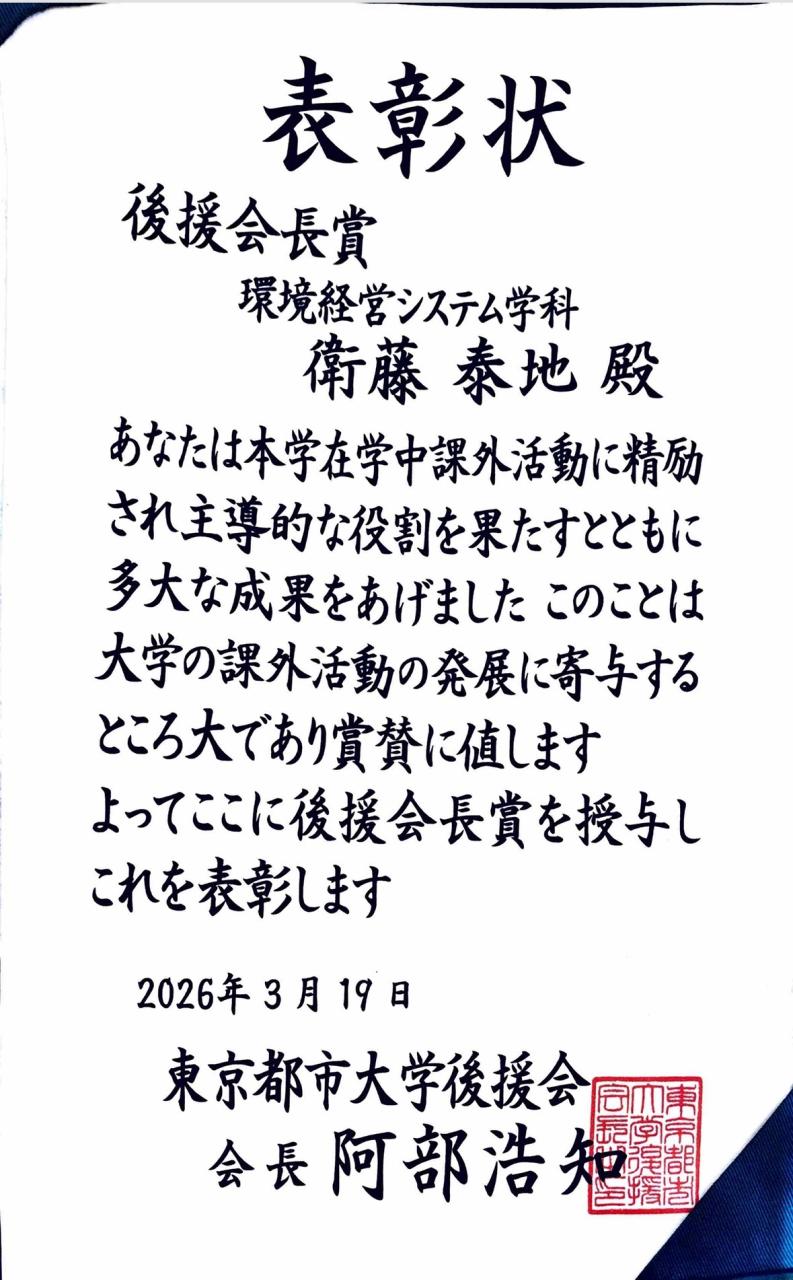 表彰状
後援会長賞
環境経営システム学科
衛藤 泰地 殿
あなたは本学在学中課外活動に精励
され主導的な役割を果たすとともに
多大な成果をあげました このことは
大学の課外活動の発展に寄与する
ところ大であり賞賛に値します
よってここに後援会長賞を授与し
これを表彰します
2026年 3 月 19 日
東京都市大学後援会
会長 阿部浩知
東京都市
大学後援
会長之印